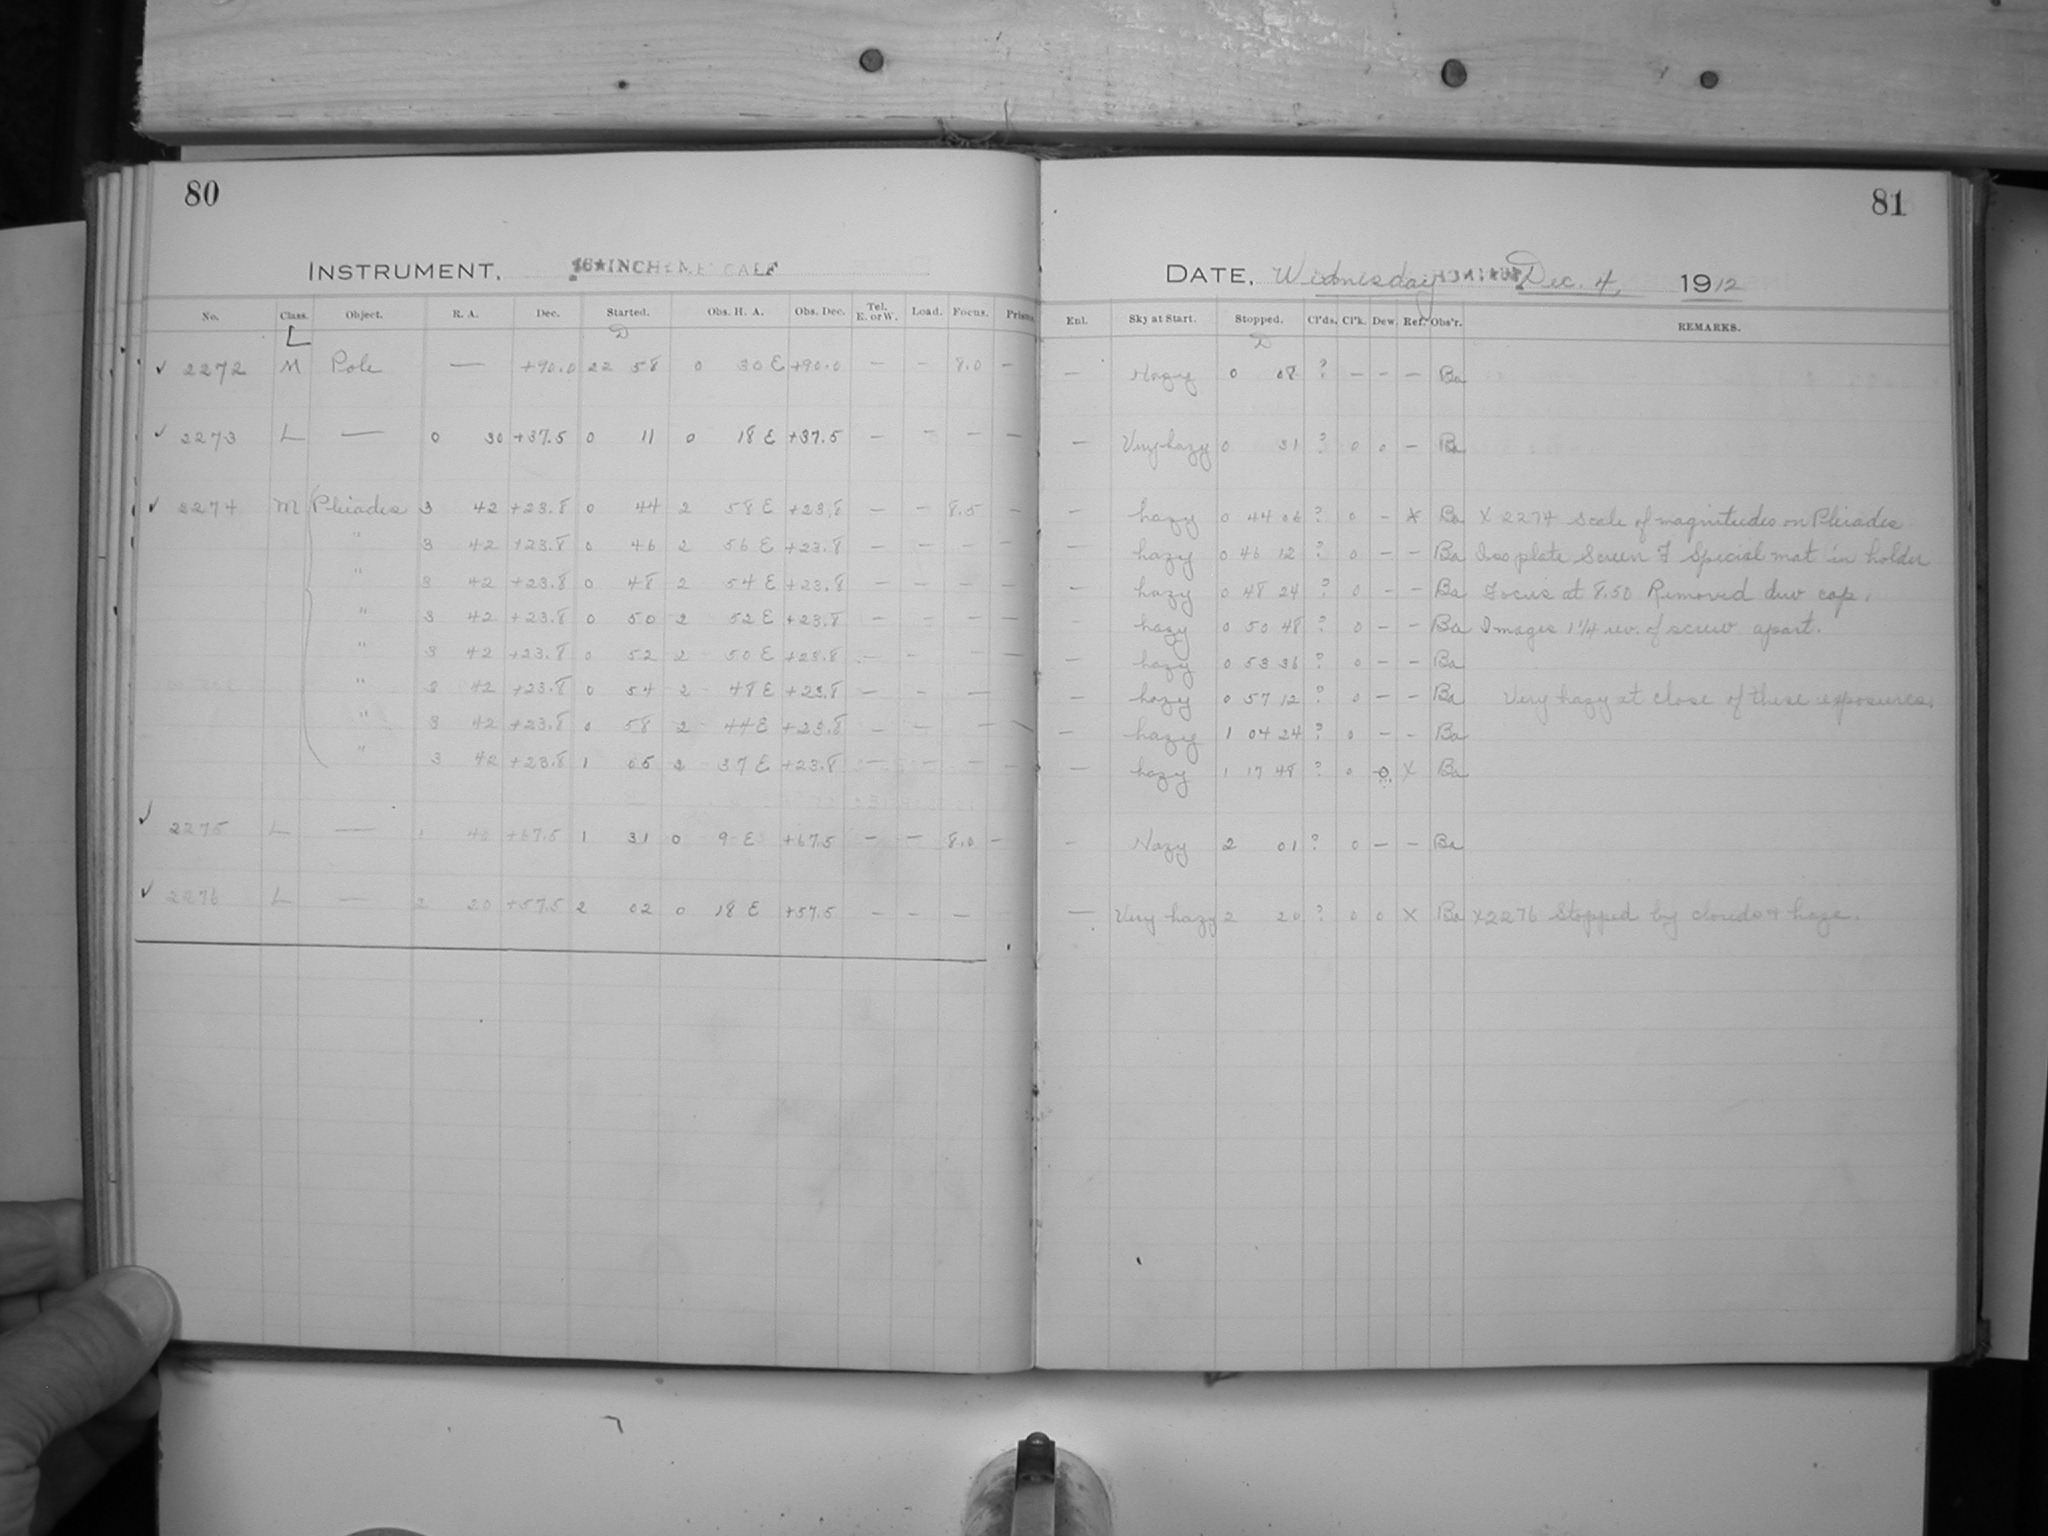 80
INSTRUMENT, 16 INCH METCALF
No. Class. Object. R. A. Dec. Started. Obs. H. A. Obs. Dec. Tel. E. or W. Load. Focus. Prism.
L D
✓ 2272 M Pole — +90.0 22 58 0 30 E +90.0 — — 8.0 —
✓ 2273 L — 0 30 +37.5 0 11 0 18 E +37.5 — — — —
✓ 2274 M Pleiades 3 42 +23.8 0 44 2 58 E +23.8 — — 8.5 —
" 3 42 +23.8 0 46 2 56 E +23.8 — — — —
" 3 42 +23.8 0 48 2 54 E +23.8 — — — —
" 3 42 +23.8 0 50 2 52 E +23.8 — — — —
" 3 42 +23.8 0 52 2 50 E +23.8 — — — —
" 3 42 +23.8 0 54 2 48 E +23.8 — — —
" 3 42 +23.8 0 58 2 44 E +23.8 — — — —
" 3 42 +23.8 1 05 2 37 E +23.8 — — — —
✓ 2275 L — 1 40 +67.5 1 31 0 9 E +67.5 — — 8.0 —
✓ 2276 L — 2 20 +57.5 2 02 0 18 E +57.5 — — —
81
DATE, Wednesday Dec. 4, 1912
Enl. Sky at Start. Stopped. Cl'ds. Cl'k. Dew. Ref. Obs'r. REMARKS.
D
— Hazy 0 08 ? — — — Ba
— Very hazy 0 31 ? 0 0 — Ba
— hazy 0 44 06 ? 0 — X Ba X 2274 Scale of magnitudes on Pleiades
— hazy 0 46 12 ? 0 — — Ba Iso plate Screen F Special mat in holder
— hazy 0 48 24 ? 0 — — Ba Focus at 8.50 Removed dew cap.
— hazy 0 50 48 ? 0 — — Ba Images 1 1/4 rev. of screw apart.
— hazy 0 53 36 ? 0 — — Ba
— hazy 0 57 12 ? 0 — — Ba Very hazy at close of these exposures.
— hazy 1 04 24 ? 0 — — Ba
— hazy 1 17 48 ? 0 0 X Ba
— Hazy 2 01 ? 0 — — Ba
— Very hazy 2 20 ? 0 0 X Ba X2276 Stopped by clouds + haze.